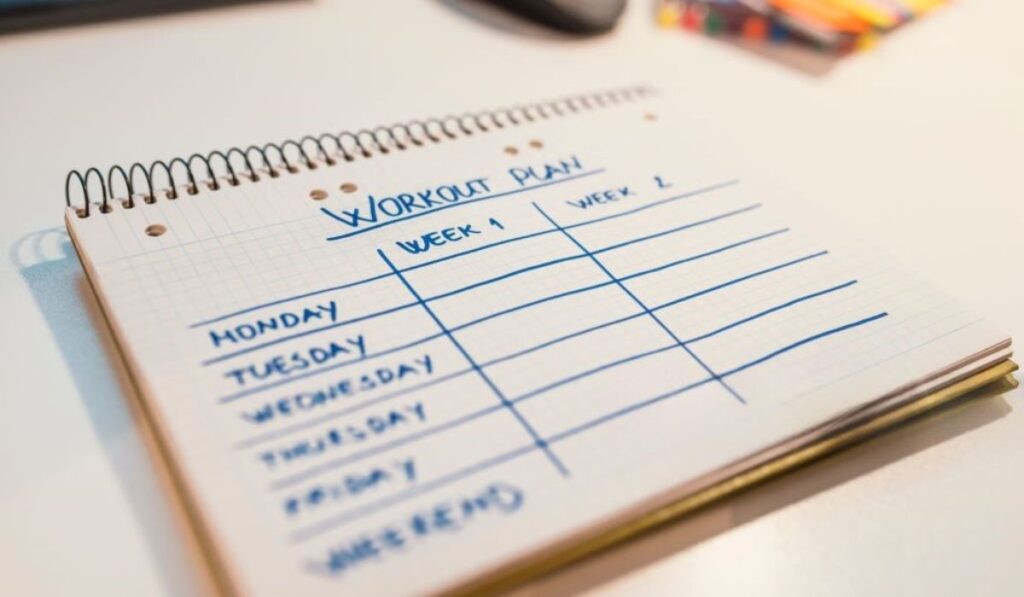 WORKOUT PLAN
WEEK 1 WEEK 2
MONDAY
TUESDAY
WEDNESDAY
THURSDAY
FRIDAY
WEEKEND